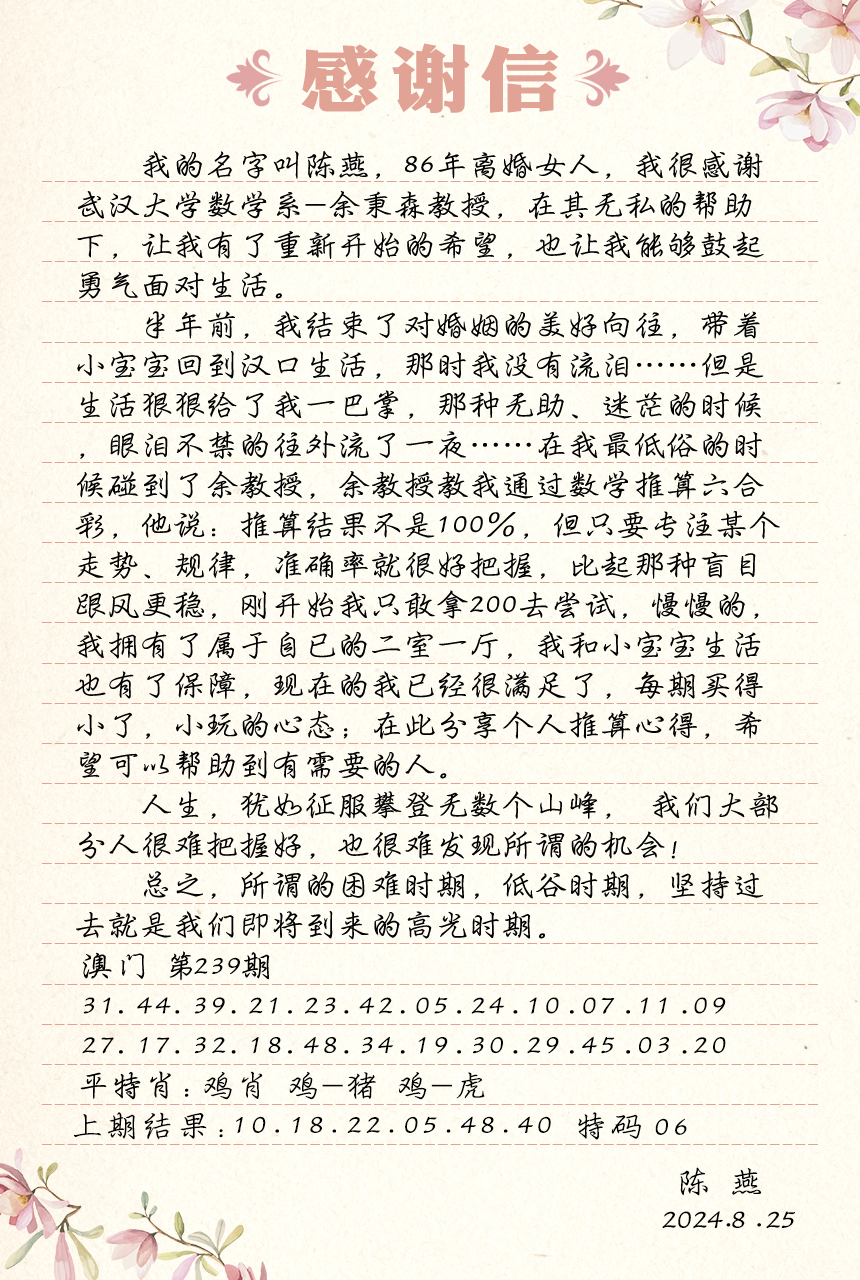 感谢信
我的名字叫陈燕，86年离婚女人，我很感谢
武汉大学数学系—余秉森教授，在其无私的帮助
下，让我有了重新开始的希望，也让我能够鼓起
勇气面对生活。
半年前，我结束了对婚姻的美好向往，带着
小宝宝回到汉口生活，那时我没有流泪……但是
生活狠狠给了我一巴掌，那种无助、迷茫的时候
，眼泪不禁的往外流了一夜……在我最低俗的时
候碰到了余教授，余教授教我通过数学推算六合
彩，他说：推算结果不是100%，但只要专注某个
走势、规律，准确率就很好把握，比起那种盲目
跟风更稳，刚开始我只敢拿200去尝试，慢慢的，
我拥有了属于自已的二室一厅，我和小宝宝生活
也有了保障，现在的我已经很满足了，每期买得
小了，小玩的心态；在此分享个人推算心得，希
望可以帮助到有需要的人。
人生，犹如征服攀登无数个山峰， 我们大部
分人很难把握好，也很难发现所谓的机会！
总之，所谓的困难时期，低谷时期，坚持过
去就是我们即将到来的高光时期。
澳门 第239期
31.44.39.21.23.42.05.24.10.07.11.09
27.17.32.18.48.34.19.30.29.45.03.20
平特肖：鸡肖 鸡—猪 鸡—虎
上期结果：10.18.22.05.48.40 特码 06
陈 燕
2024.8.25